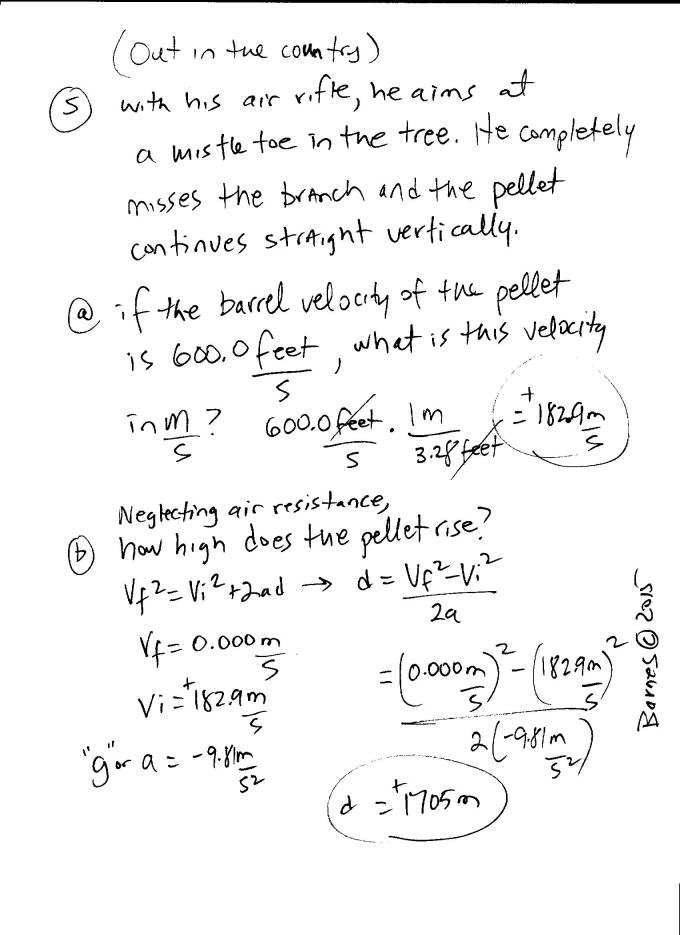 (Out in the country)
⑤ with his air rifle, he aims at
a mistle toe in the tree. He completely
misses the branch and the pellet
continues straight vertically.
ⓐ if the barrel velocity of the pellet
is 600.0 feet/s, what is this velocity
in m/s? 600.0 feet/s · 1m/3.28 feet = +182.9 m/s
Neglecting air resistance,
ⓑ how high does the pellet rise?
Vf² = Vi² + 2ad → d = Vf² - Vi² / 2a
Vf = 0.000 m/s
= (0.000 m/s)² - (182.9 m/s)² / 2(-9.81 m/s²)
Vi = +182.9 m/s
"g" or a = -9.81 m/s²
d = +1705 m
Barnes © 2015